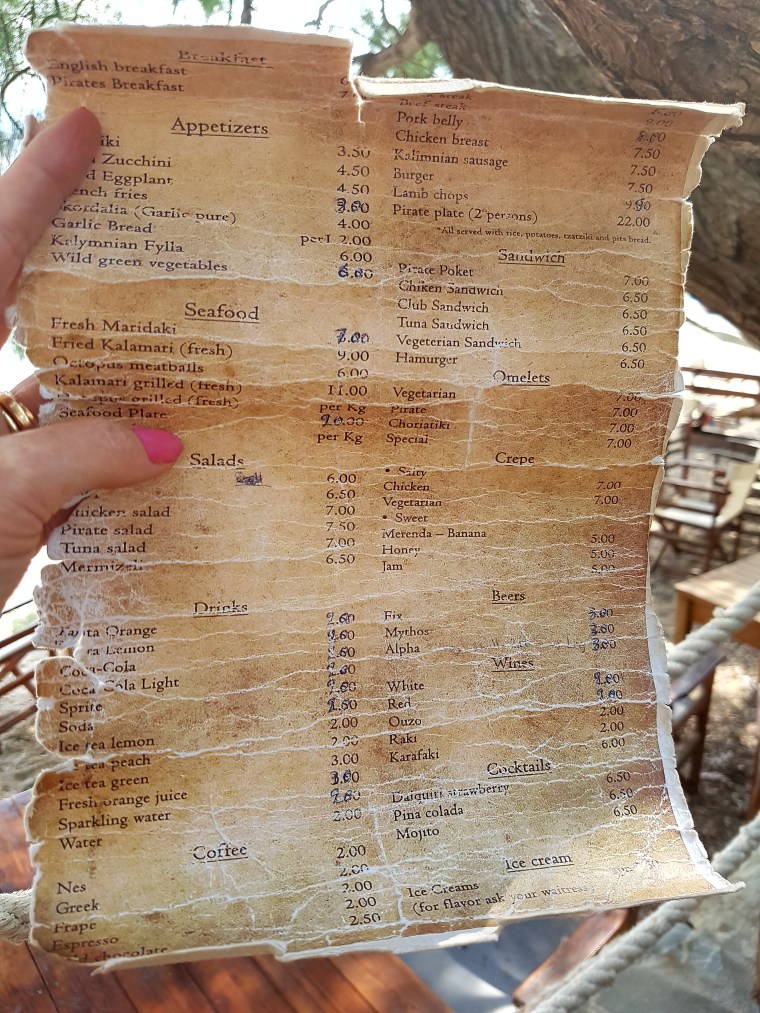 Breakfast
English breakfast
Pirates Breakfast
Appetizers
iki 3.50
Zucchini 4.50
d Eggplant 4.50
ench fries
kordalia (Garlic pure) 4.00
Garlic Bread per1 2.00
Kalymnian Fylla 6.00
Wild green vegetables
Seafood
Fresh Maridaki
Fried Kalamari (fresh) 9.00
Octopus meatballs 6.00
Kalamari grilled (fresh) 11.00
grilled (fresh) per Kg
Seafood Plate
per Kg
Salads
6.00
6.50
hicken salad 7.00
Pirate salad 7.50
Tuna salad 7.00
Mermizeli 6.50
Drinks
Orange
ra Lemon
Coca-Cola
Coca Cola Light
Sprite
Soda 2.00
Ice tea lemon 2.00
tea peach 3.00
Ice tea green
Fresh orange juice
Sparkling water 2.00
Water
Coffee
2.00
2.00
Nes 2.00
Greek 2.00
Frape 2.50
Espresso
chocolate
steak
Beef steak
Pork belly 9.00
Chicken breast
Kalimnian sausage 7.50
Burger 7.50
Lamb chops 7.50
Pirate plate (2 persons)
22.00
*All served with rice, potatoes, tzatziki and pita bread.
Sandwich
Pirate Poket 7.00
Chiken Sandwich 6.50
Club Sandwich 6.50
Tuna Sandwich 6.50
Vegeterian Sandwich 6.50
Hamurger 6.50
Omelets
Vegetarian 7.00
Pirate 7.00
Choriatiki 7.00
Special 7.00
Crepe
• Salty
Chicken 7.00
Vegetarian 7.00
• Sweet
Merenda – Banana 5.00
Honey 5.00
Jam 5.00
Beers
Fix
Mythos
Alpha
Wines
White
Red
Ouzo 2.00
Raki 2.00
Karafaki 6.00
Cocktails
Daiquiri strawberry 6.50
Pina colada 6.50
Mojito 6.50
Ice cream
Ice Creams
(for flavor ask your waitress)